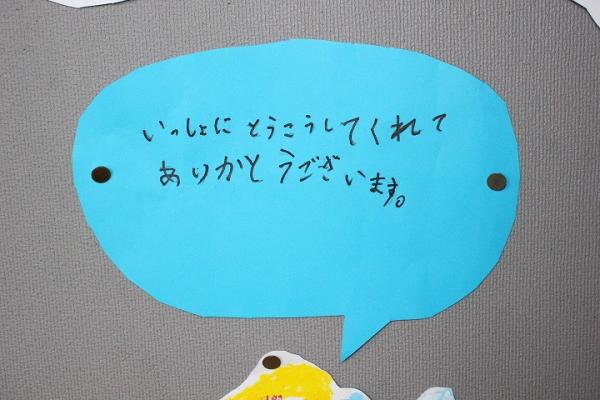 いっしょにとうこうしてくれて
ありがとうございます。